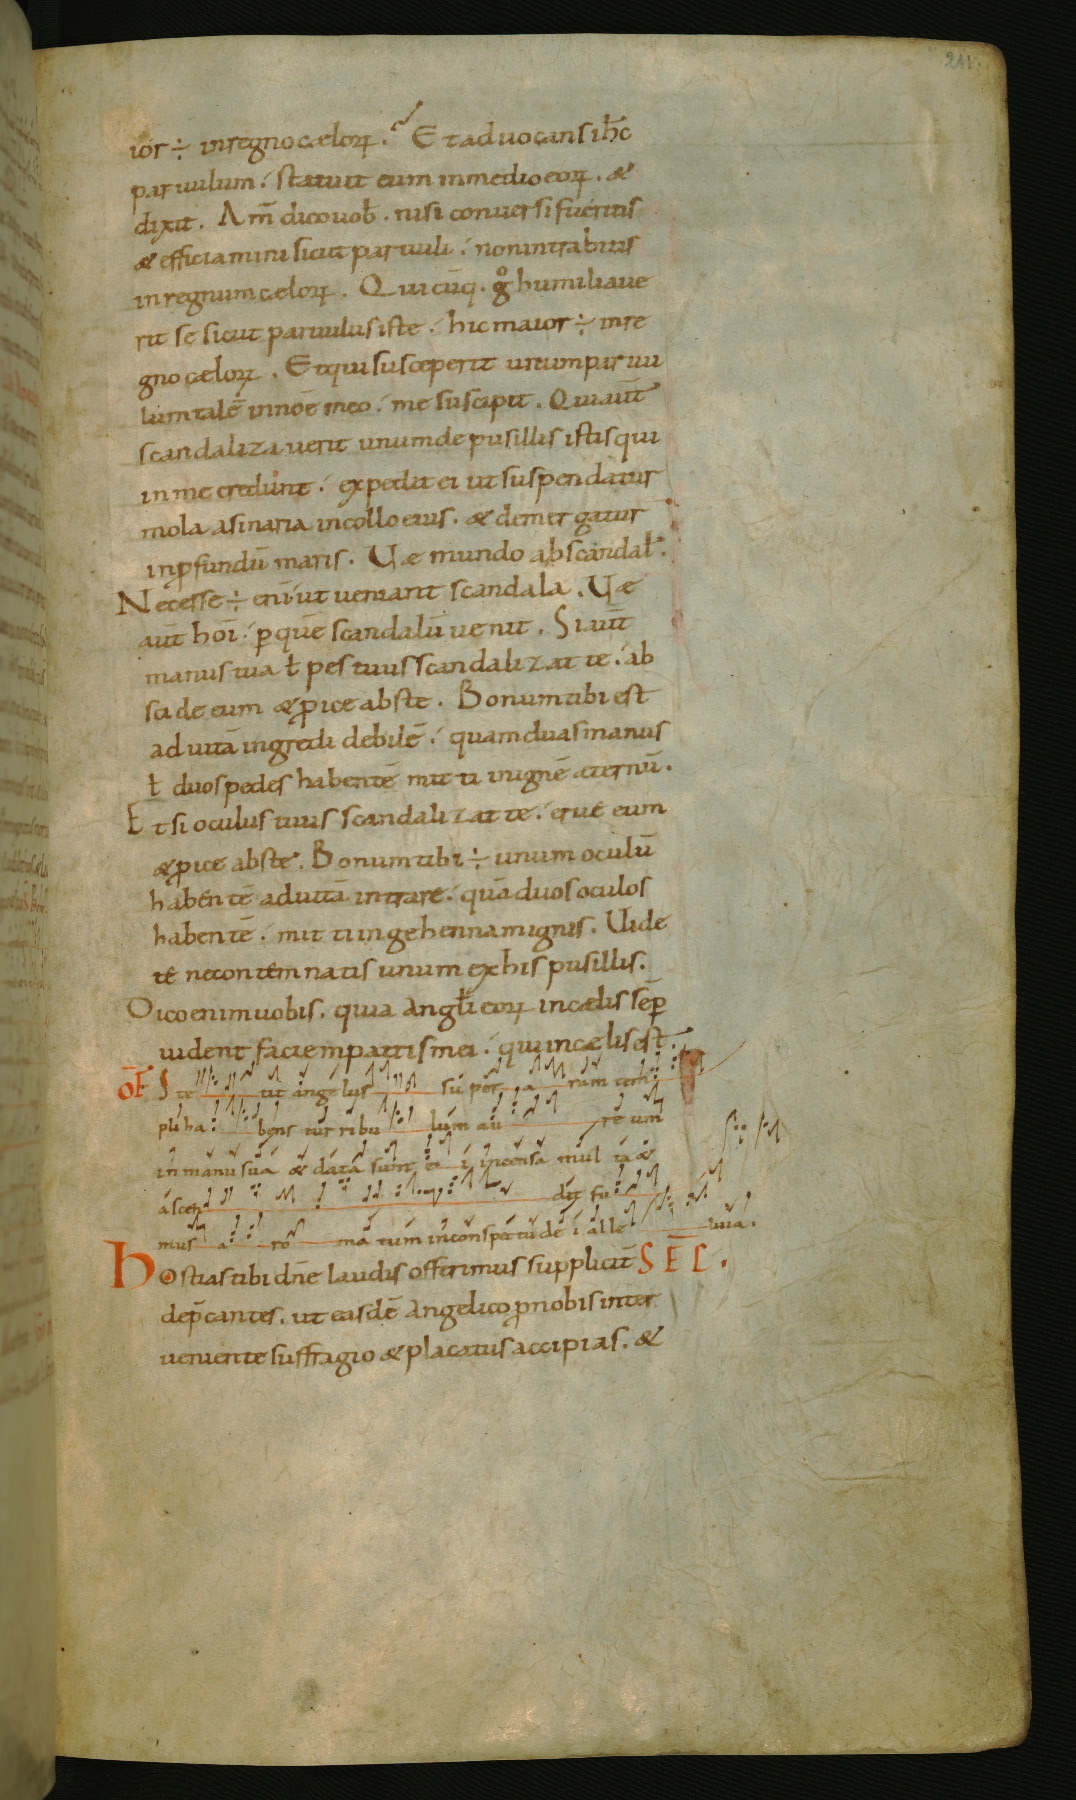 211
ior ÷ in regno cælorꝝ. Et aduocans ih̄c
paruulum. statuit eum in medio eorꝝ. &
dixit. Am̄ dico uob̄. nisi conuersi fueritis
& efficiamini sicut paruuli. non intrabitis
in regnum cælorꝝ. Quicūq. gͦ humiliaue
rit se sicut paruulus iste. hic maior ÷ in re
gno cælorꝝ. Et qui susceperit unum paruu
lum talē in noē meo. me suscipit. Qui aūt
scandalizauerit unum de pusillis istis qui
in me credunt. expedit ei ut suspendatur
mola asinaria in collo eius. & demergatur
in ꝓfundū maris. Uæ mundo ab scandal̄.
Necesse ÷ enī ut ueniant scandala. Uæ
aūt hoī. ꝑ quē scandalū uenit. Si aūt
manus tua ł pes tuus scandalizat te. ab
scide eum & ꝓice abs te. Bonum tibi est
ad uitā ingredi debilē. quam duas manus
ł duos pedes habentē mitti in ignē æternū.
Et si oculus tuus scandalizat te. erue eum
& ꝓice abs te. Bonum tibi ÷ unum oculū
habentē ad uitā intrare. quā duos oculos
habentē. mitti in gehennam ignis. Uide
te ne contemnatis unum ex his pusillis.
Dico enim uobis. quia angl̄i eorꝝ in cælis sēp
uident faciem patris mei. qui in cælis est.
OF̄ Ste tit angelus super a ram tem
pli ha bens turribu lum au re um
in manu sua & data sunt ei i incensa multa &
ascen dit fu
mus a ro ma tum in conspectu de i alle luia.
Hostias tibi dn̄e laudis offerimus suppliciт̄ SEC̄.
dep̄cantes. ut easdē angelico ꝓ nobis inter
ueniente suffragio & placatus accipias. &